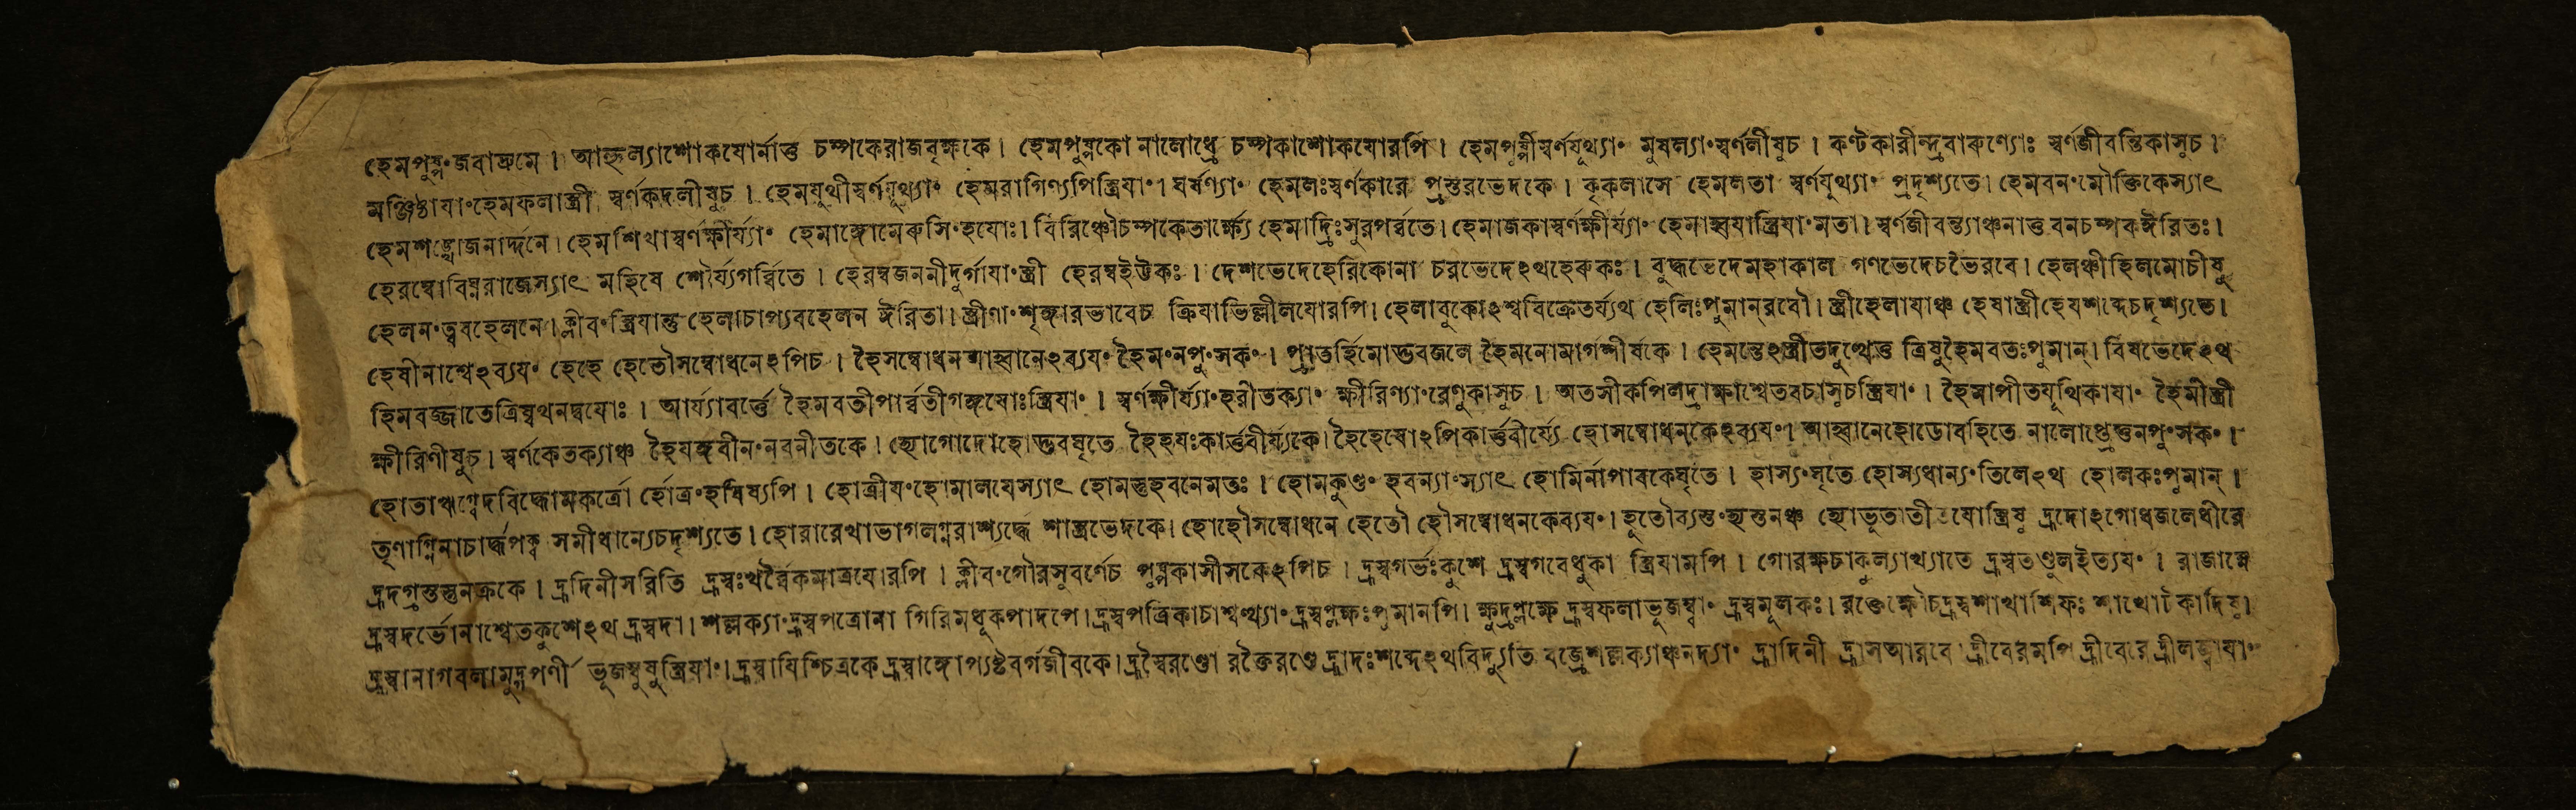 হেমপুষ্পং জবাদ্রুমে । আহুল্যাশোকযোর্নাত্তু চম্পকেরাজবৃক্ষকে । হেমপুষ্পকো নালোধ্রে চম্পকাশোকযোরপি । হেমপুষ্পীস্বর্ণযূথ্যাং মুষল্যাংস্বর্ণলীষুচ । কণ্টকারীন্দ্রবারুণ্যোঃ স্বর্ণজীবন্তিকাসুচ ।
মঞ্জিষ্ঠাযাংহেমফলাস্ত্রী স্বর্ণকদলীষুচ । হেমযূথীস্বর্ণযূথ্যাং হেমরাগিণ্যপিস্ত্রিযাং । ঘর্ষণ্যাং হেমলঃস্বর্ণকারে প্রস্তরভেদকে । কৃকলাসে হেমলতা স্বর্ণযূথ্যাং প্রদৃশ্যতে । হেমবনংমৌক্তিকেস্যাৎ
হেমশঙ্খোজনার্দ্দনে । হেমশিখাস্বর্ণক্ষীর্য্যাং হেমাঙ্গোমেরুসিংহযোঃ । বিরিঞ্চৌচম্পকেতার্ক্ষ্যে হেমাদ্রিঃসুরপর্ব্বতে । হেমাজকাস্বর্ণক্ষীর্য্যাং হেমাহ্বযাস্ত্রিযাংমতা । স্বর্ণজীবন্ত্যাঞ্চনাত্তু বনচম্পকঈরিতঃ ।
হেরম্বোবিঘ্নরাজেস্যাৎ মহিষে শৌর্য্যগর্ব্বিতে । হেরম্বজননীদুর্গাযাংস্ত্রী হেরম্বইউকঃ । দেশভেদেহেরিকোনা চরভেদেঽথহেরুকঃ । বুদ্ধভেদেমহাকাল গণভেদেচভৈরবে । হেলঞ্চীহিলমোচীষু
হেলনংত্ববহেলনে । ক্লীবং স্ত্রিযান্তু হেলাচাপ্যবহেলন ঈরিতা । স্ত্রীণাংশৃঙ্গারভাবেচ ক্রিযাভিল্লীলযোরপি । হেলাবুকোঽশ্ববিক্রেতর্য্যথ হেলিঃপুমান্‌রবৌ । স্ত্রীহেলাযাঞ্চ হেষাস্ত্রীহেযশব্দেচদৃশ্যতে ।
হেষীনাশ্বেঽব্যযং হেহে হেতৌসম্বোধনেঽপিচ । হৈসম্বোধনআহ্বানেঽব্যযং হৈমংনপুংসকং । প্রাতর্হিমোদ্ভবজলে হৈমনোমার্গশীর্ষকে । হেমন্তেঽস্ত্রীতদুত্থেতু ত্রিষুহৈমবতঃপুমান্ । বিষভেদেঽথ
হিমবজ্জাতেত্রিষ্বথনদ্বযোঃ । আর্য্যাবর্ত্তে হৈমবতীপার্ব্বতীগঙ্গযোঃস্ত্রিযাং । স্বর্ণক্ষীর্য্যাংহরীতক্যাং ক্ষীরিণ্যাংরেণুকাসুচ । অতসীকপিলদ্রাক্ষাশ্বেতবচাসুচস্ত্রিযাং । হৈমাপীতযূথিকাযাং হৈমীস্ত্রী
ক্ষীরিণীষুচ । স্বর্ণকেতক্যাঞ্চ হৈযঙ্গবীনংনবনীতকে । হ্যোগোদোহোদ্ভবঘৃতে হৈহযঃকার্ত্তবীর্য্যকে । হৈহেযোঽপিকার্ত্তবীর্য্যে হোসম্বোধনকেঽব্যযং । আহ্বানেহোডোবহিতে নালোপ্ত্রেস্তুনপুংসকং ।
হোতাঋগ্বেদবিদ্ধোমকর্ত্রো র্হোত্রংহবিষ্যপি । হোত্রীযংহোমালযেস্যাৎ হোমস্তুহবনেমতঃ । হোমকুণ্ডং হবন্যাংস্যাৎ হোমির্নাপাবকেঘৃতে । হাস্যংঘৃতে হোস্যধান্যংতিলেঽথ হোলকঃপুমান্ ।
তৃণাগ্নিনাচার্দ্ধপক্ব সমীধান্যেচদৃশ্যতে । হোরারেখাভাগলগ্নরাশ্যর্দ্ধে শাস্ত্রভেদকে । হোহৌসম্বোধনে হেতৌ হৌসম্বোধনকেব্যযং । হুতৌব্যস্তংহ্যস্তনঞ্চ হ্যোভূতাতীতযোস্ত্রিষু হ্রদোঽগোধজলেধীরে
হ্রদগ্রস্তস্তুনক্রকে । হ্রদিনীসরিতি হ্রস্বঃখর্ব্বৈকমাত্রযোরপি । ক্লীবংগৌরসুবর্ণেচ পুষ্পকাসীসকেঽপিচ । হ্রস্বগর্ভঃকুশে হ্রস্বগবেধুকা স্ত্রিযামপি । গোরক্ষচাকুল্যাখ্যাতে হ্রস্বতণ্ডুলইত্যযং । রাজান্নে
হ্রস্বদর্ভোনাশ্বেতকুশেঽথ হ্রস্বদা । শল্লক্যাংহ্রস্বপত্রোনা গিরিমধূকপাদপে । হ্রস্বপত্রিকাচাশ্বত্থ্যাংহ্রস্বপ্লক্ষঃপুমানপি । ক্ষুদ্রপ্লক্ষে হ্রস্বফলাভূজম্ব্বাং হ্রস্বমূলকঃ । রক্তেক্ষৌচহ্রস্বশাখাশিফঃ শাখোটকাদিষু ।
হ্রস্বানাগবলামুদ্গপর্ণী ভূজম্বুষুস্ত্রিযাং । হ্রস্বাগ্নিশ্চিত্রকে হ্রস্বাঙ্গোপ্যষ্টবর্গজীবকে । হ্রস্বৈরণ্ডো রক্তৈরণ্ডে হ্রাদঃশব্দেঽথবিদ্যুতি বজ্রেশল্লক্যাঞ্চনদ্যাং হ্রাদিনী হ্রাসআরবে । হ্রীবেরমপি হ্রীবেরে হ্রীলজ্জাযাং